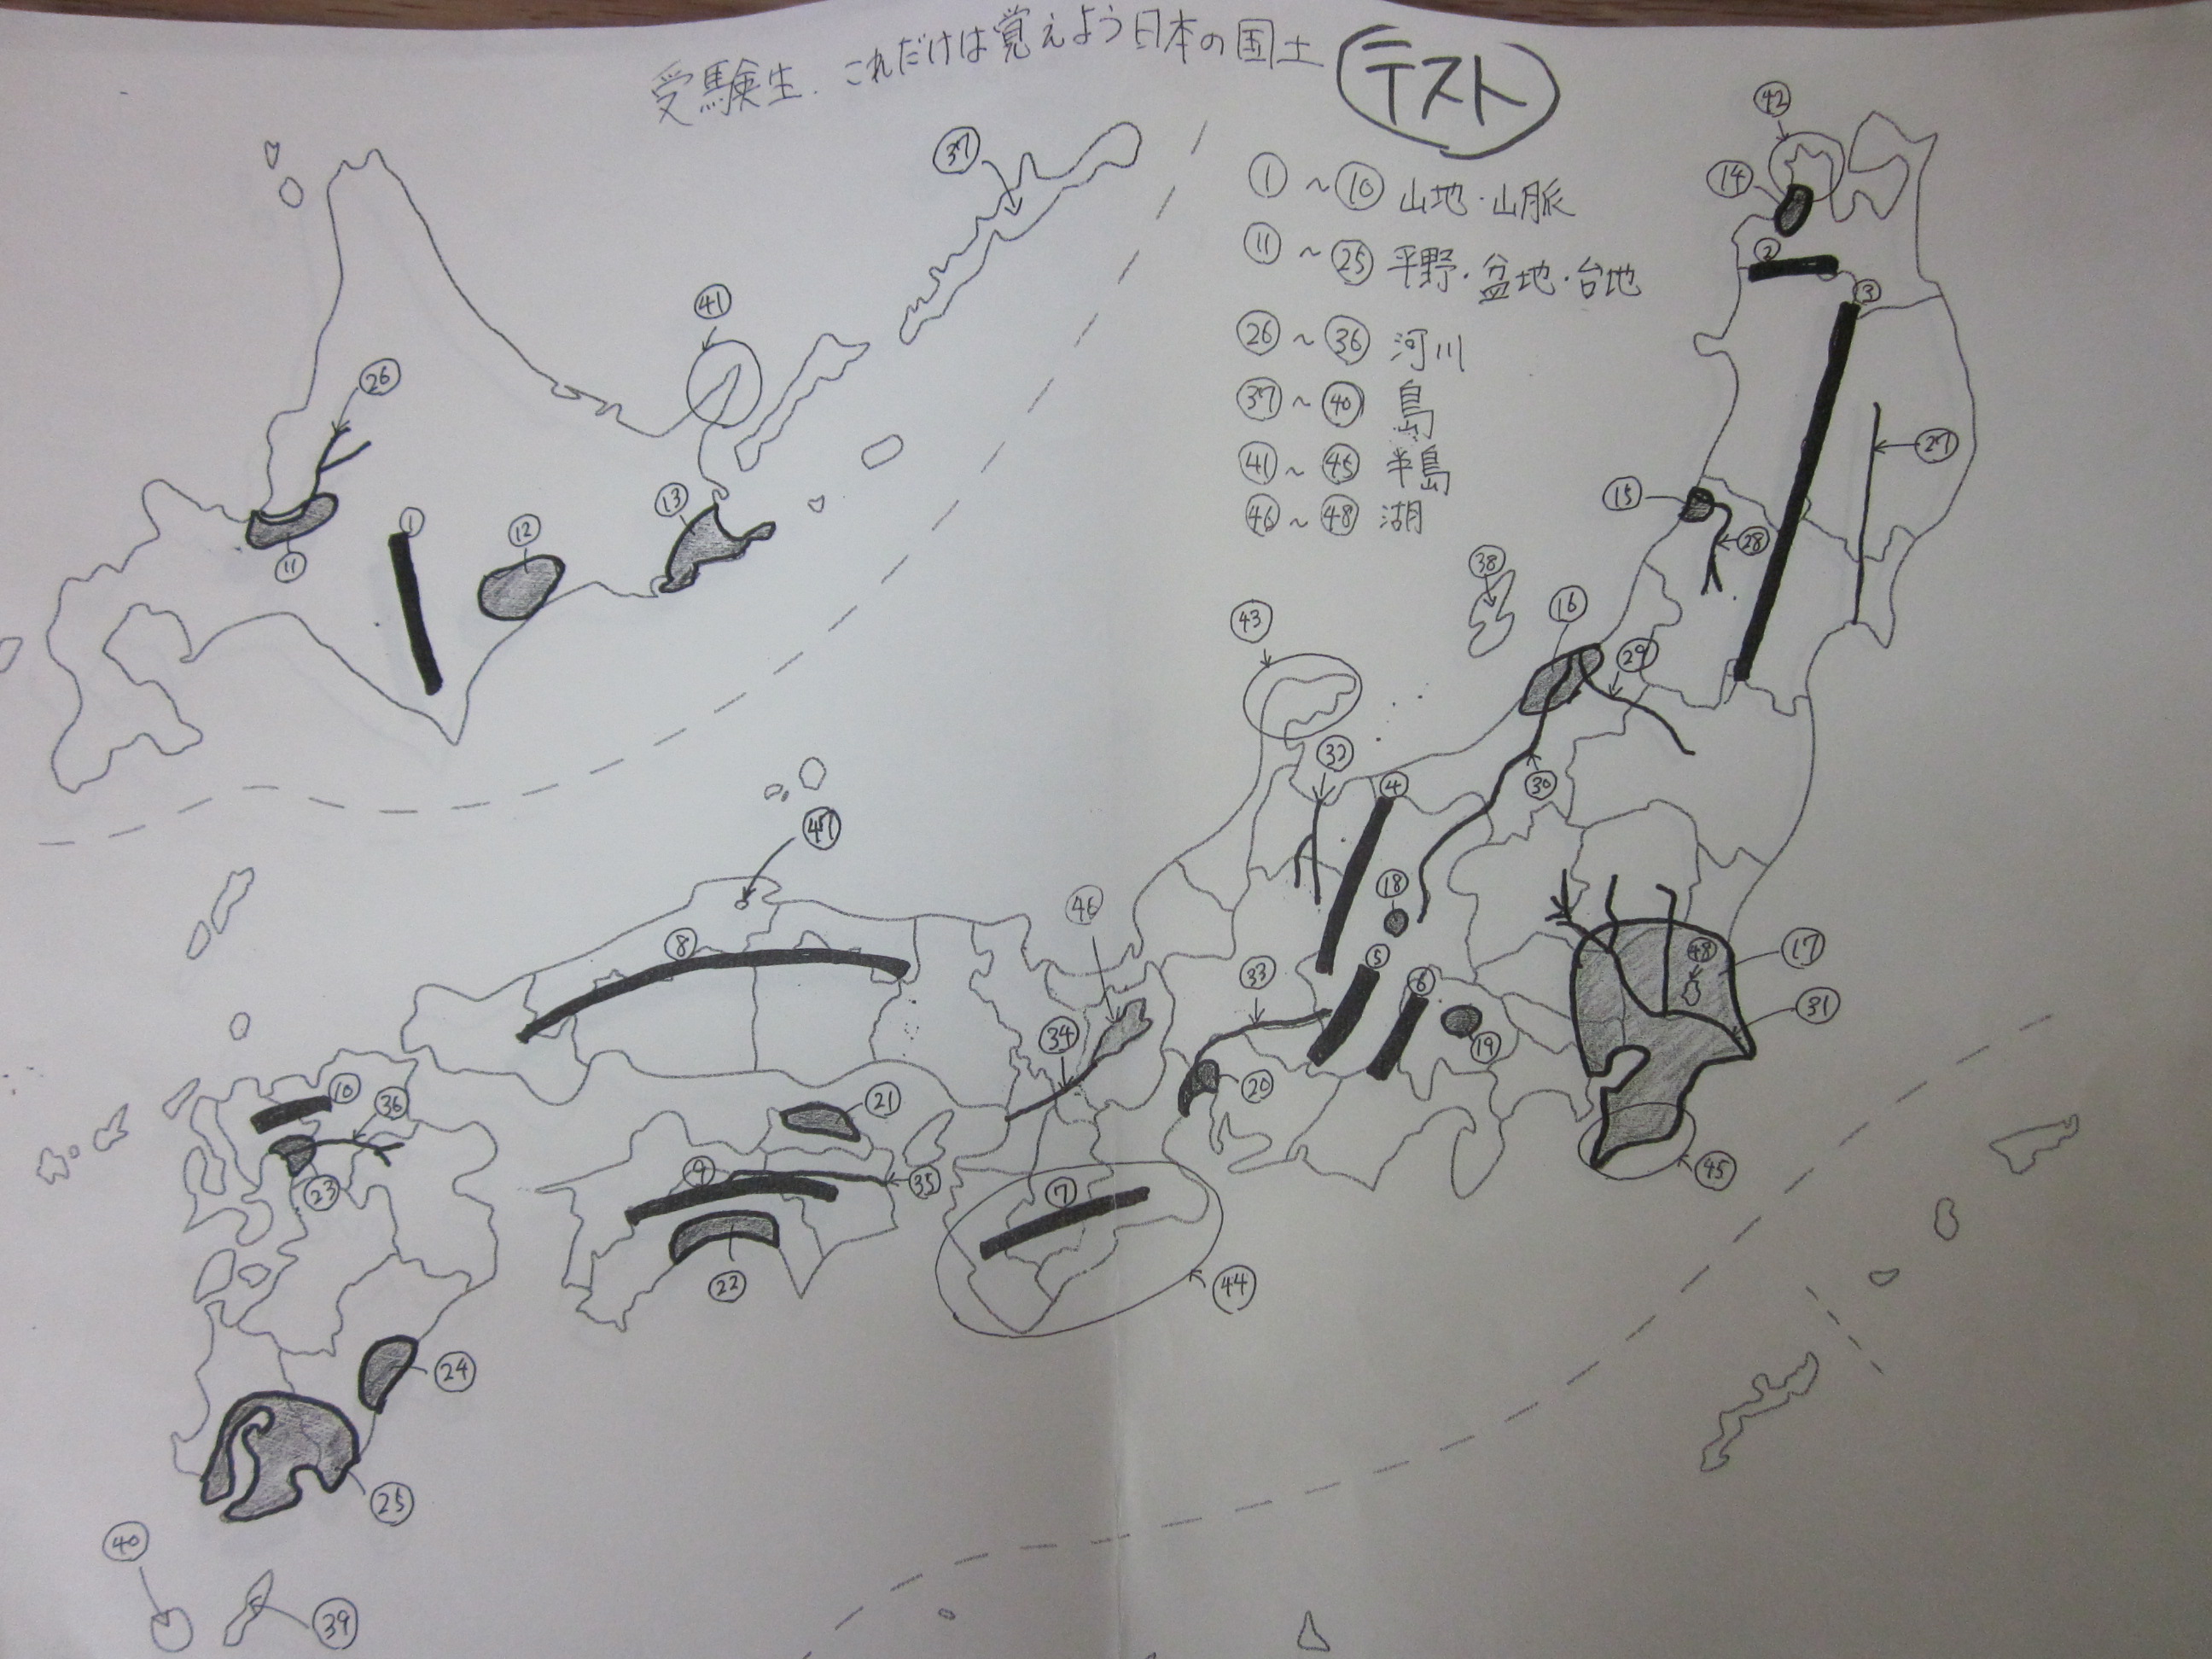 受験生、これだけは覚えよう日本の国土 テスト
①～⑩ 山地・山脈
⑪～㉕ 平野・盆地・台地
㉖～㊱ 河川
㊲～㊵ 島
㊶～㊺ 半島
㊻～㊽ 湖
㊷
⑭
②
③
㊲
㊶
㉖
⑪
①
⑫
⑬
㉗
⑮
㉘
㊳
⑯
㉙
㊸
㉜
④
㉚
㊼
⑱
㊻
⑧
⑤
⑥
㉝
㊽
⑰
㉛
㉞
⑲
⑳
⑩
㊱
㉑
㉓
⑨
㉟
⑦
㊺
㉒
㊹
㉔
㉕
㊵
㊴